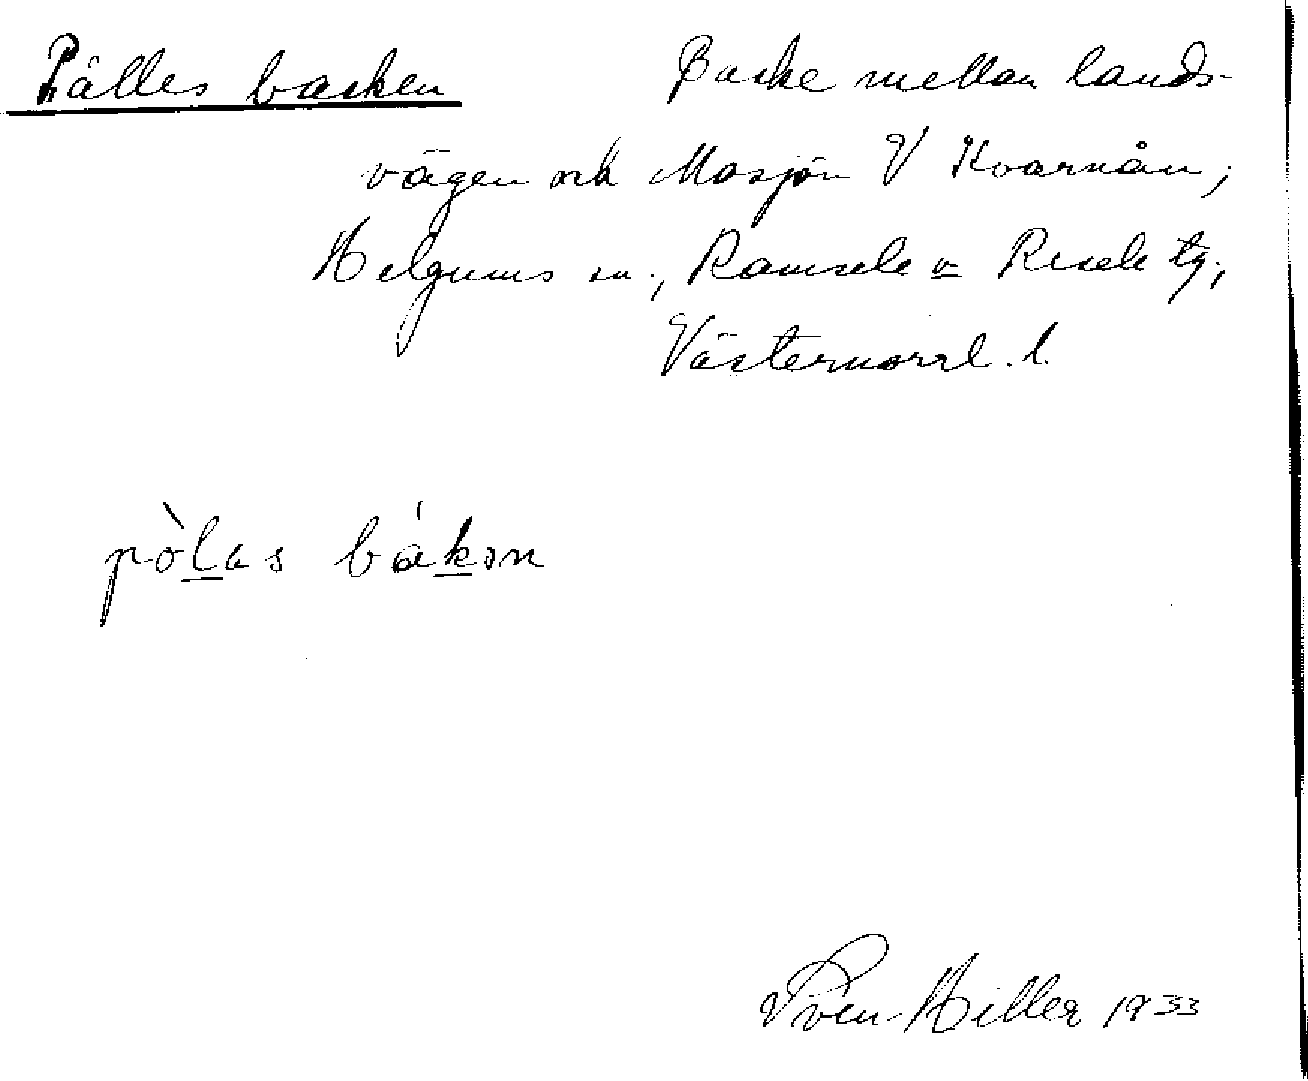 Pålles backen Backe mellan lands-
vägen och Mosjön V Kvarnån;
Helgums sn., Ramsele o Resele tg;
Västernorrl. l.
pòlas bákən
Sven Hiller 1933